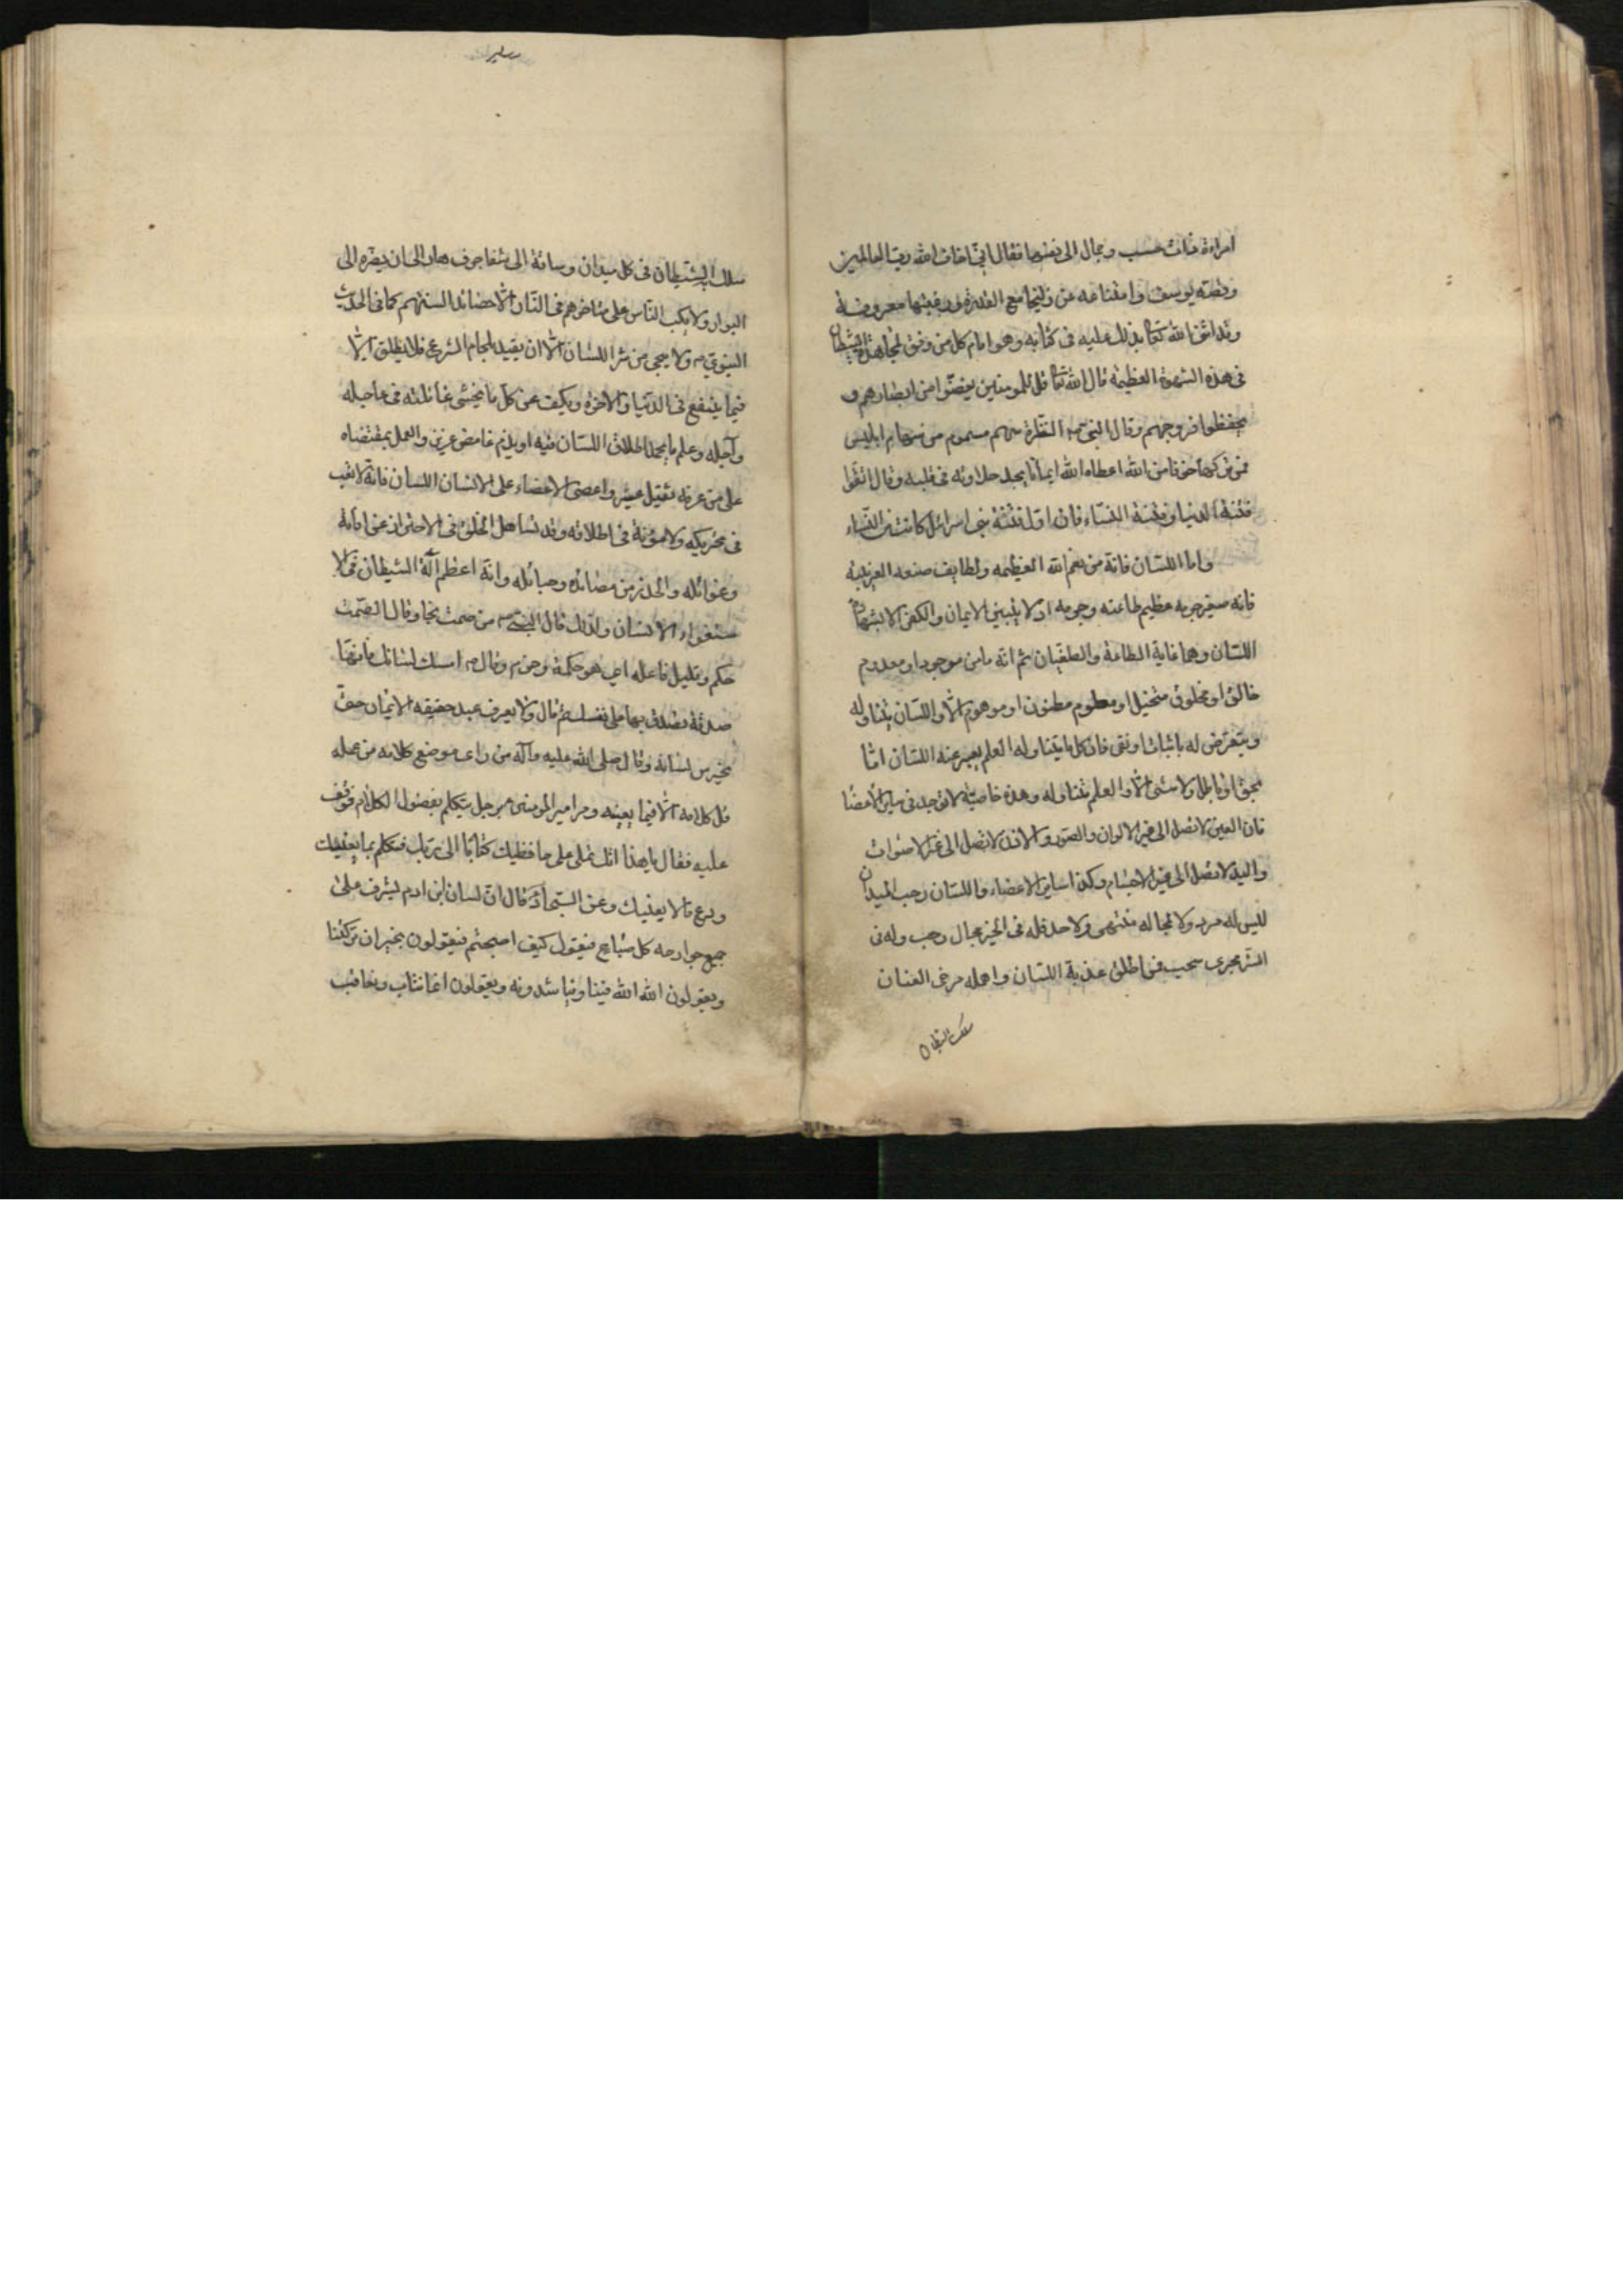 امراءة ذات حسب وجمال الى نفسها فقال انى اخاف الله رب العالمين
وقصّه يوسف وامتناعه عن زليخا مع القدرة ورغبتها معروفة
وقد اثنى الله تعالى بذلك عليه فى كتابه وهو امام كل من وفق لمجاهدة الشيطان
فى هذه الشهوة العظيمة قال الله تعالى قل للمومنين يغضّوا من ابصارهم و
يحفظوا فروجهم وقال النبى ص النظرة سهم مسموم من سهام ابليس
فمن تركها خوفا من الله اعطاه الله ايمانا يجد حلاوته فى قلبه وقال اتقوا
فتنة الدنيا وفتنة النساء فان اول فتنة بنى اسرائل كانت من النساء
واما اللسان فانه من نعم الله العظيمه ولطايف صنعه الغريبة
فانه صغير جرمه عظيم طاعته وجرمه اذ لا يتبين الايمان والكفر الا بشهادة
اللسان وهما غاية الطاعة والطغيان ثم انه ما من موجود او معدوم
خالق او مخلوق متخيل او معلوم مظنون او موهوم الا واللسان يتناوله
ويتعرّض له باثبات او نفى فان كل ما يتناوله العلم يعبر عنه اللسان امّا
بحق او باطل ولا شئ الا والعلم يتناوله وهذه خاصية لا توجد فى ساير الاعضا
فان العين لا تصل الى غير الالوان والصور والاذن لا تصل الى غير الاصوات
واليد لا تصل الى غير الاجسام وكذا ساير الاعضاء واللسان رحب الميدان
ليس له مرد ولا لمجاله منتهى ولا حد فله فى الخير مجال رحب وله فى
الشر مجرى سحب فمن اطلق عذبة اللسان واهمله مرخى العنان
سلك الشيطان
سلك به الشيطان فى كل ميدان وساقه الى شفا جرف هار الى ان يضره الى
البوار ولا يكب الناس على مناخرهم فى النار الا حصائد السنتهم كما فى الحديث
النبوي ص ولا ينجى من شر اللسان الا ان يقيد بلجام الشرع فلا يطلق الا
فيما ينفع فى الدنيا والاخرة ويكف عن كل ما يخشى غائلته فى عاجله
وآجله وعلم ما يحمد اطلاق اللسان فيه او يذم غامض عزيز والعمل بمقتضاه
على من عرفه ثقيل عسير واعصى الاعضاء على الانسان اللسان فانه لا تعب
فى تحريكه ولا مؤنة فى اطلاقه وقد تساهل الخلق فى الاحتراز عن افاته
وغوائله والحذر من مصائده وحبائله وانه اعظم آلة الشيطان فى الا
ستغواء الانسان ولذلك قال النبى ص من صمت نجا وقال الصمت
حكم وقليل فاعله اى هو حكمة وحزم وقال ص امسك لسانك فانها
صدقة تصدق بها على نفسك ثم قال ولا يعرف عبد حقيقه الايمان حتى
يخزن لسانه وقال صلى الله عليه وآله من راى موضع كلامه من عمله
قل كلامه الا فيما يعنيه ومر امير المومنين برجل يتكلم بفضول الكلام فوقف
عليه فقال يا هذا انك تملى على حافظيك كتابا الى ربك فتكلم بما يعنيك
ودع ما لا يعنيك وعن السجاد ع قال ان لسان ابن ادم يشرف على
جميع جوارحه كل صباح فيقول كيف اصبحتم فيقولون بخير ان تركتنا
ويقولون الله الله فينا ويناشدونه ويقولون انما نثاب ونعاقب